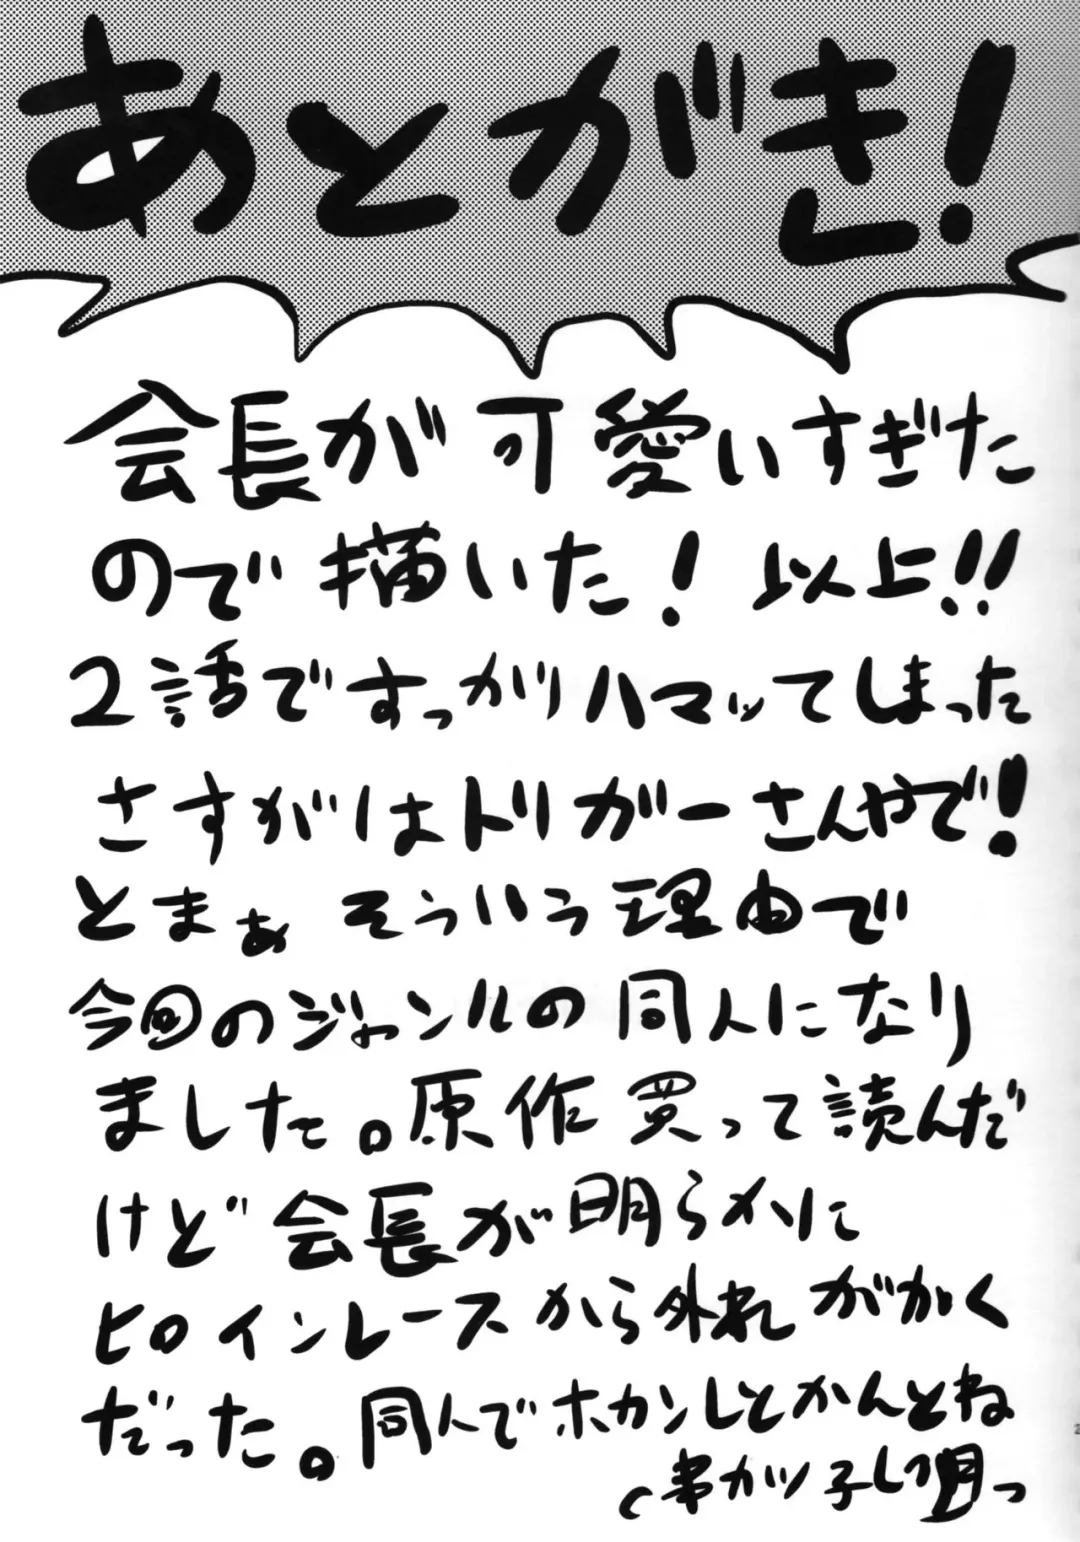 あとがき!
会長が可愛いすぎた
ので描いた! 以上!!
2話ですっかりハマッてしまった
さすがはトリガーさんやで!
とまぁ そういう理由で
今回のジャンルの同人になり
ました。原作買って読んだ
けど会長が明らメリに
ヒロインレースから外れ がかく
だった。同人でホカンしとかんとね
串カツ子